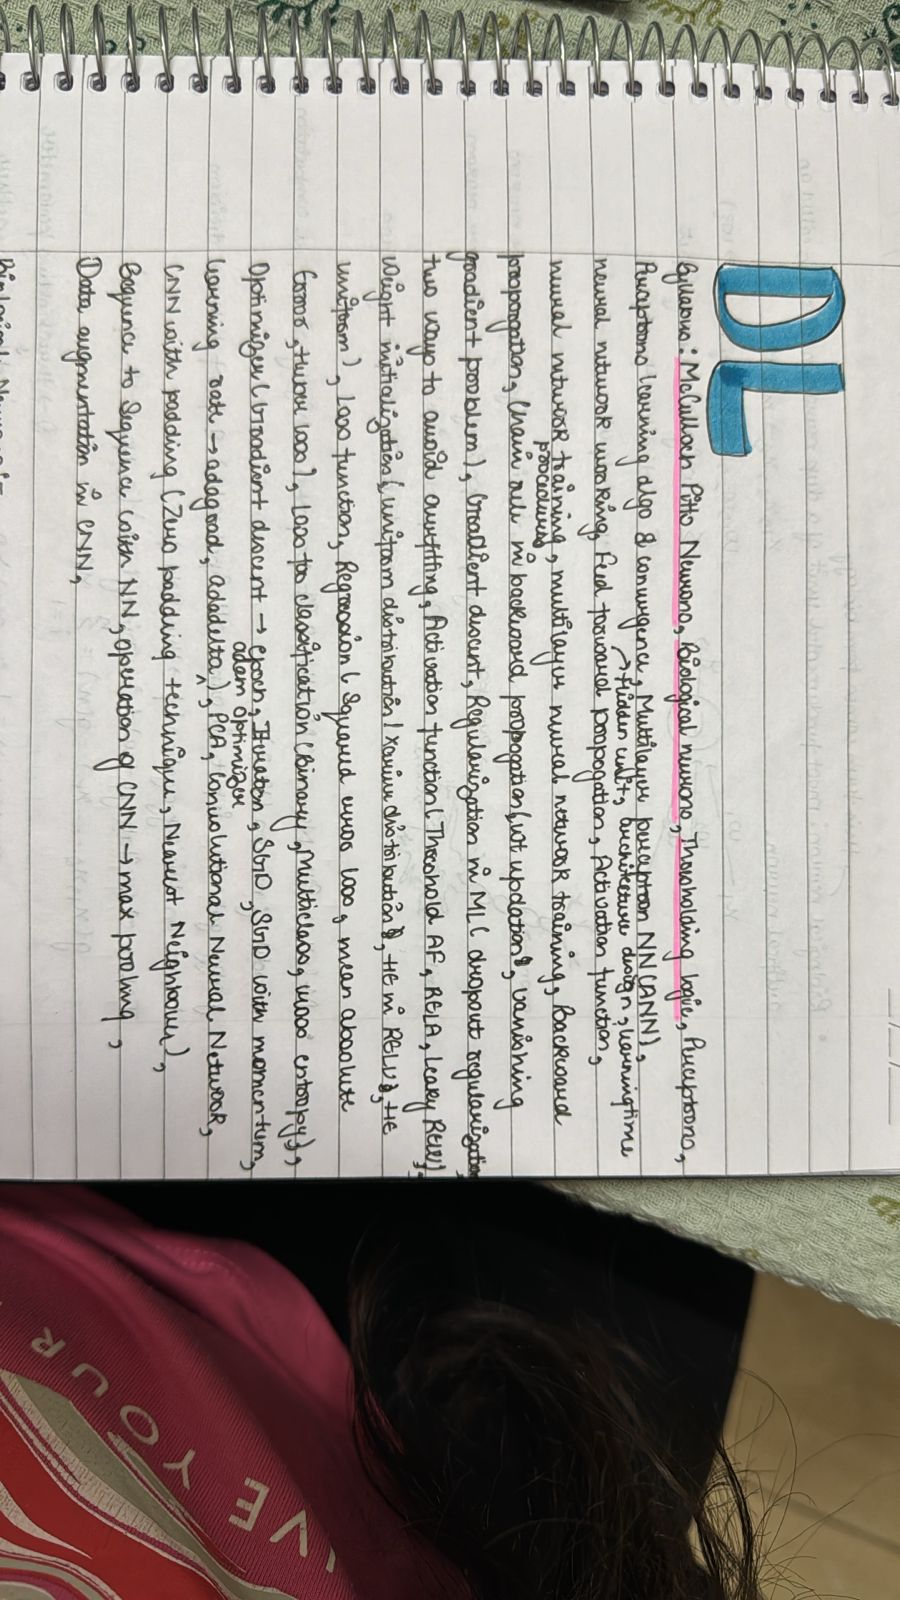 DL
Syllabus: McCulloch Pitts Neurons, Biological neurons, Thresholding logic, Perceptrons,
Perceptrons learning algo & convergence, Multilayer perceptron NN (ANN),
→ Hidden unit, architecture design, learning time
neural network working, Feed forward propogation, Activation function,
neural network training, multilayer neural network training, Backward
procedures
propogation, Chain rule in backward propogation (wt updation), vanishing
gradient problem), Gradient descent, Regularization in ML (dropout regularization
two ways to avoid overfitting, Activation function (Threshold AF, RELA, Leaky RELU),
Weight initialization (uniform distribution / Xavier distribution), HE in RELU), HE
uniform), Loss function, Regression (Squared error loss, mean absolute
Error, Huber loss), Loss for classification (Binary, Multiclass, cross entropy),
Optimizer (Gradient descent → epoch, Iteration, SGD, SGD with momentum,
adam optimizer
learning rate → adagrad, adadelta ^), PCA, Convolutional Neural Network,
CNN with padding (Zero padding technique, Nearest Neighbour),
Sequence to Sequence with NN, operation of CNN → max pooling,
Data augmentation in CNN,
IVE YOUR